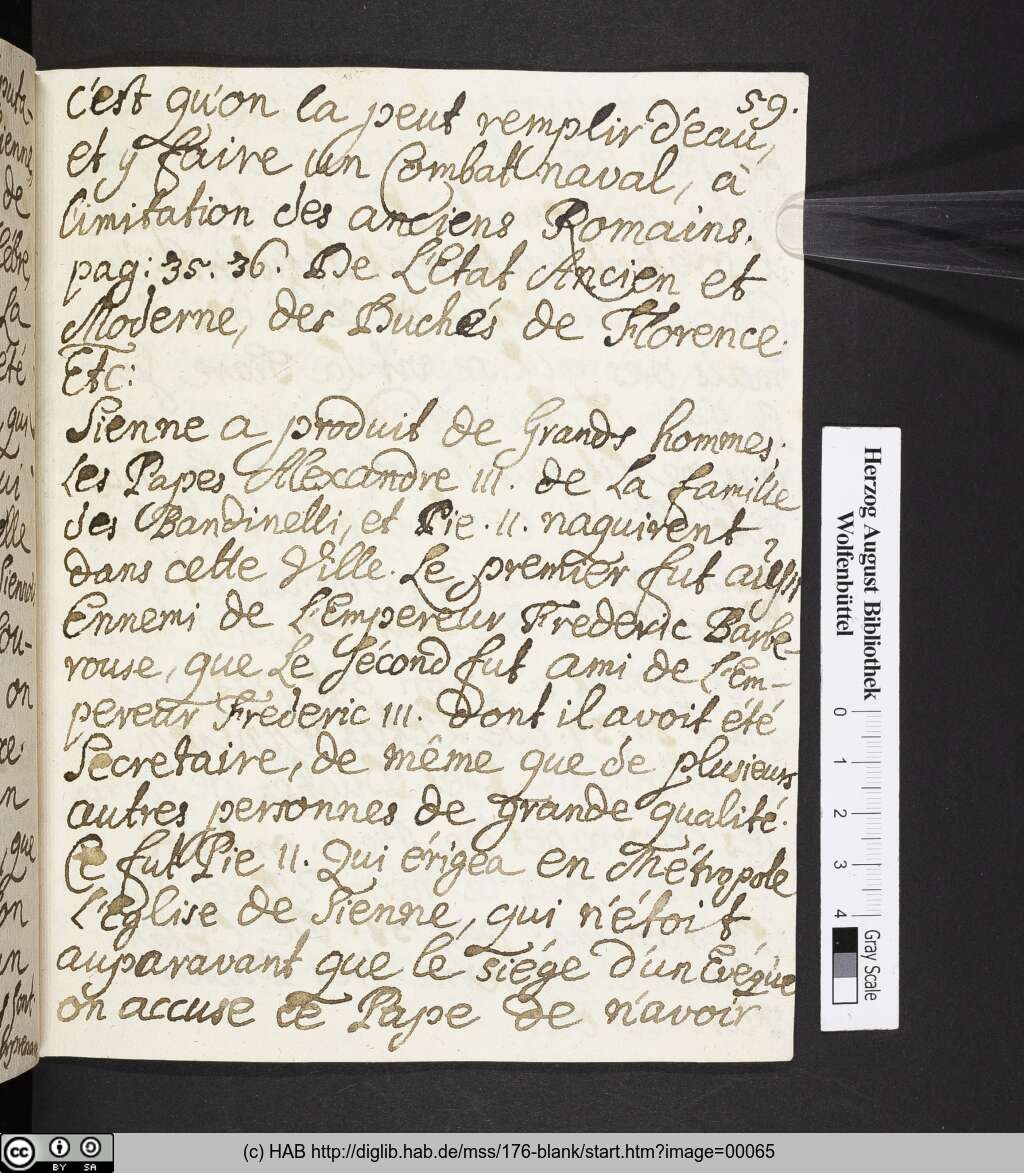 59.
c'est qu'on la peut remplir d'eau,
et y faire un Combat naval, à
l'imitation des anciens Romains.
pag: 35. 36. De L'Etat Ancien et
Moderne, des Duchés de Florence.
Etc:
Sienne a produit de Grands hommes;
Les Papes Alexandre III. de La famille
des Bandinelli, et Pie. II. naquirent
dans cette Ville. Le premier fut aussi
Ennemi de L'Empereur Frederic Barbe-
rouse, que Le Sécond fut ami de L'Em-
pereur Frederic III. Dont il avoit été
Secretaire, de même que de plusieurs
autres personnes de grande qualité.
Ce fut Pie II. Qui érigea en Métropole
L'église de Sienne, qui n'étoit
auparavant que le siége d'un Evéque
on accuse ce Pape de n'avoir
Herzog August Bibliothek
Wolfenbüttel
0 1 2 3 4
Gray Scale
cc BY SA
(c) HAB http://diglib.hab.de/mss/176-blank/start.htm?image=00065